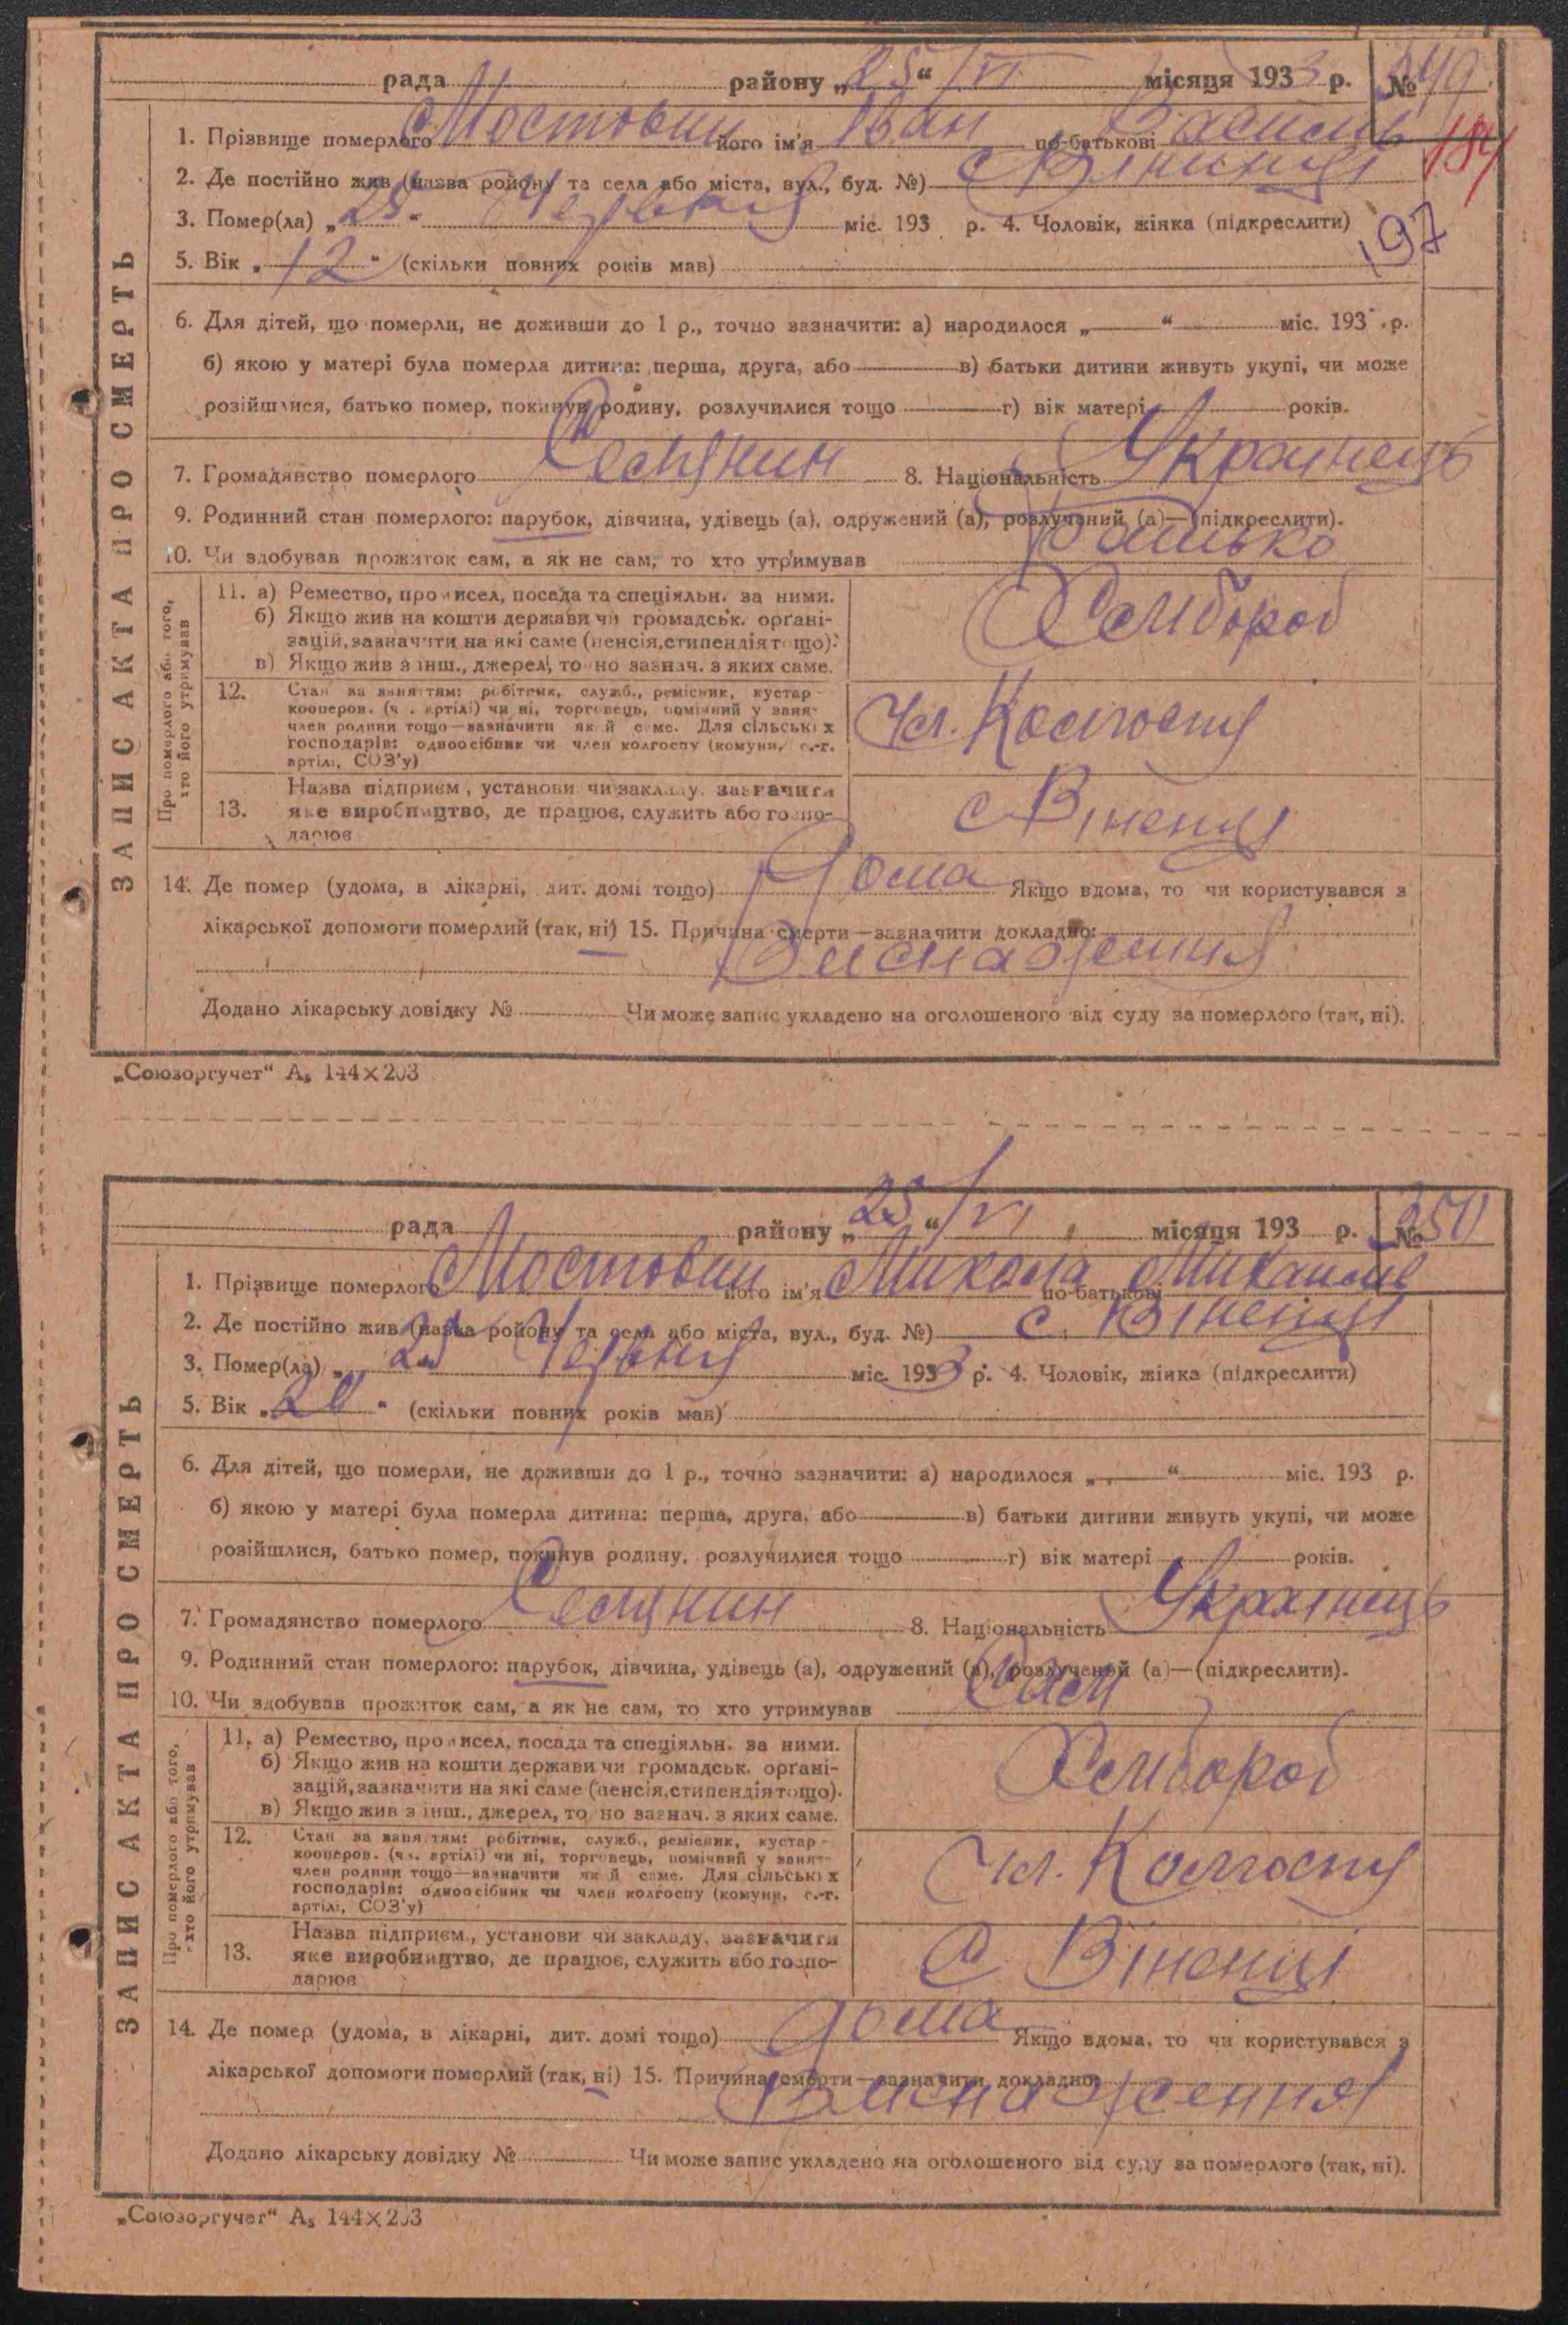 рада району „25“ /VI місяця 1933 р. № 349
184
1. Прізвище померлого Мостовий його ім'я Іван по-батькові Василів
2. Де постійно жив (назва ройону та села або міста, вул., буд. №) с Вінинці
3. Помер(ла) „25“ Червня міс. 193 р. 4. Чоловік, жінка (підкреслити)
197
5. Вік „12“ (скільки повних років мав)
6. Для дітей, що померли, не доживши до 1 р., точно зазначити: а) народилося „ “ міс. 193 р.
б) якою у матері була померла дитина: перша, друга, або в) батьки дитини живуть укупі, чи може
розійшлися, батько помер, покинув родину, розлучилися тощо г) вік матері років.
7. Громадянство померлого Селянин 8. Національність Українець
9. Родинний стан померлого: парубок, дівчина, удівець (а), одружений (а), розлучений (а)—(підкреслити).
10. Чи здобував прожиток сам, а як не сам, то хто утримував Батько
ЗАПИС АКТА ПРО СМЕРТЬ
Про померлого або того,
хто його утримував
11. а) Ремество, промисел, посада та спеціяльн. за ними.
б) Якщо жив на кошти держави чи громадськ. орґані-
зацій, зазначити на які саме (пенсія, стипендія тощо).
в) Якщо жив з інш., джерел, точно зазнач. з яких саме.
Хлібороб
12. Стан за заняттям: робітник, служб., ремісник, кустар
кооперов. (чл. артілі) чи ні, торговець, помічний у занят-
член родини тощо—зазначити який саме. Для сільських
господарів: одноосібник чи член колгоспу (комуни, с.-г.
артілі, СОЗ'у)
Чл. Колгоспу
13. Назва підприєм., установи чи закладу, зазначити
яке виробництво, де працює, служить або госпо-
дарює
с Віненці
14. Де помер (удома, в лікарні, дит. домі тощо) Дома Якщо вдома, то чи користувався з
лікарської допомоги померлий (так, ні) 15. Причина смерти—зазначити докладно:
Виснаження
Додано лікарську довідку № Чи може запис укладено на оголошеного від суду за померлого (так, ні).
„Союзоргучет“ А₅ 144×203
рада району „25“ /VI місяця 193 р. № 350
1. Прізвище померлого Мостовий його ім'я Микола по-батькові Михайлів
2. Де постійно жив (назва ройону та села або міста, вул., буд. №) с. Віненці
3. Помер(ла) „25“ Червня міс. 1933 р. 4. Чоловік, жінка (підкреслити)
5. Вік „20“ (скільки повних років мав)
6. Для дітей, що померли, не доживши до 1 р., точно зазначити: а) народилося „ “ міс. 193 р.
б) якою у матері була померла дитина: перша, друга, або в) батьки дитини живуть укупі, чи може
розійшлися, батько помер, покинув родину, розлучилися тощо г) вік матері років.
7. Громадянство померлого Селянин 8. Національність Українець
9. Родинний стан померлого: парубок, дівчина, удівець (а), одружений (а), розлучений (а)—(підкреслити).
10. Чи здобував прожиток сам, а як не сам, то хто утримував Сам
ЗАПИС АКТА ПРО СМЕРТЬ
Про померлого або того,
хто його утримував
11. а) Ремество, промисел, посада та спеціяльн. за ними.
б) Якщо жив на кошти держави чи громадськ. орґані-
зацій, зазначити на які саме (пенсія, стипендія тощо).
в) Якщо жив з інш., джерел, точно зазнач. з яких саме.
Хлібороб
12. Стан за заняттям: робітник, служб., ремісник, кустар-
кооперов. (чл. артілі) чи ні, торговець, помічний у занят-
член родини тощо—зазначити який саме. Для сільських
господарів: одноосібник чи член колгоспу (комуни, с.-г.
артілі, СОЗ'у)
Чл. Колгоспу
13. Назва підприєм., установи чи закладу, зазначити
яке виробництво, де працює, служить або госпо-
дарює
С Віненці
14. Де помер (удома, в лікарні, дит. домі тощо) Дома Якщо вдома, то чи користувався з
лікарської допомоги померлий (так, ні) 15. Причина смерти—зазначити докладно:
Виснаження
Додано лікарську довідку № Чи може запис укладено на оголошеного від суду за померлого (так, ні).
„Союзоргучет“ А₅ 144×203